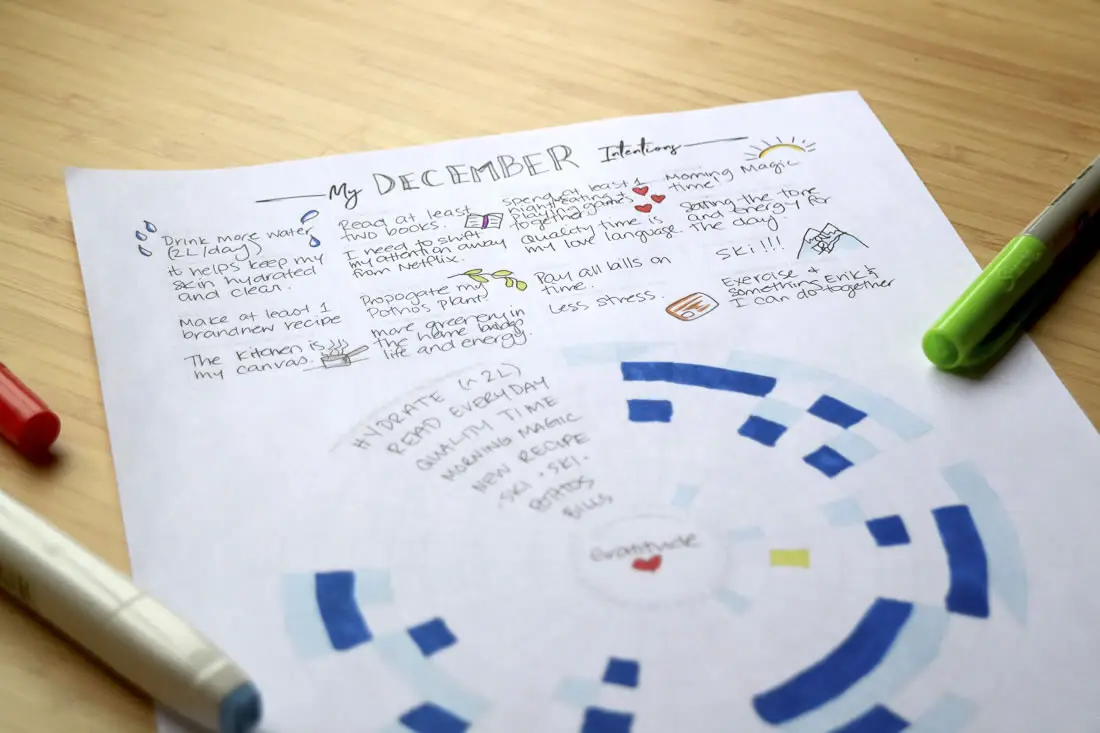 My DECEMBER Intentions
Drink more water
(2L/day)
it helps keep my
skin hydrated
and clear.
Make at least 1
brandnew recipe
The kitchen is
my canvas.
Read at least
two books.
I need to shift
my attention away
from Netflix.
Propogate my
Pothos plant
more greenery in
the home brings
life and energy.
spend at least 1
night eating +
playing games
together
Quality time is
my love language.
Pay all bills on
time.
Less stress.
Morning Magic
time
Setting the tone
and energy for
the day.
SKi!!!
Exercise +
something Erik &
I can do together
HYDRATE (~ 2L)
READ EVERYDAY
QUALITY TIME
MORNING MAGIC
NEW RECIPE
SKI · SKI ·
POTHOS
BILLS
Gratitude